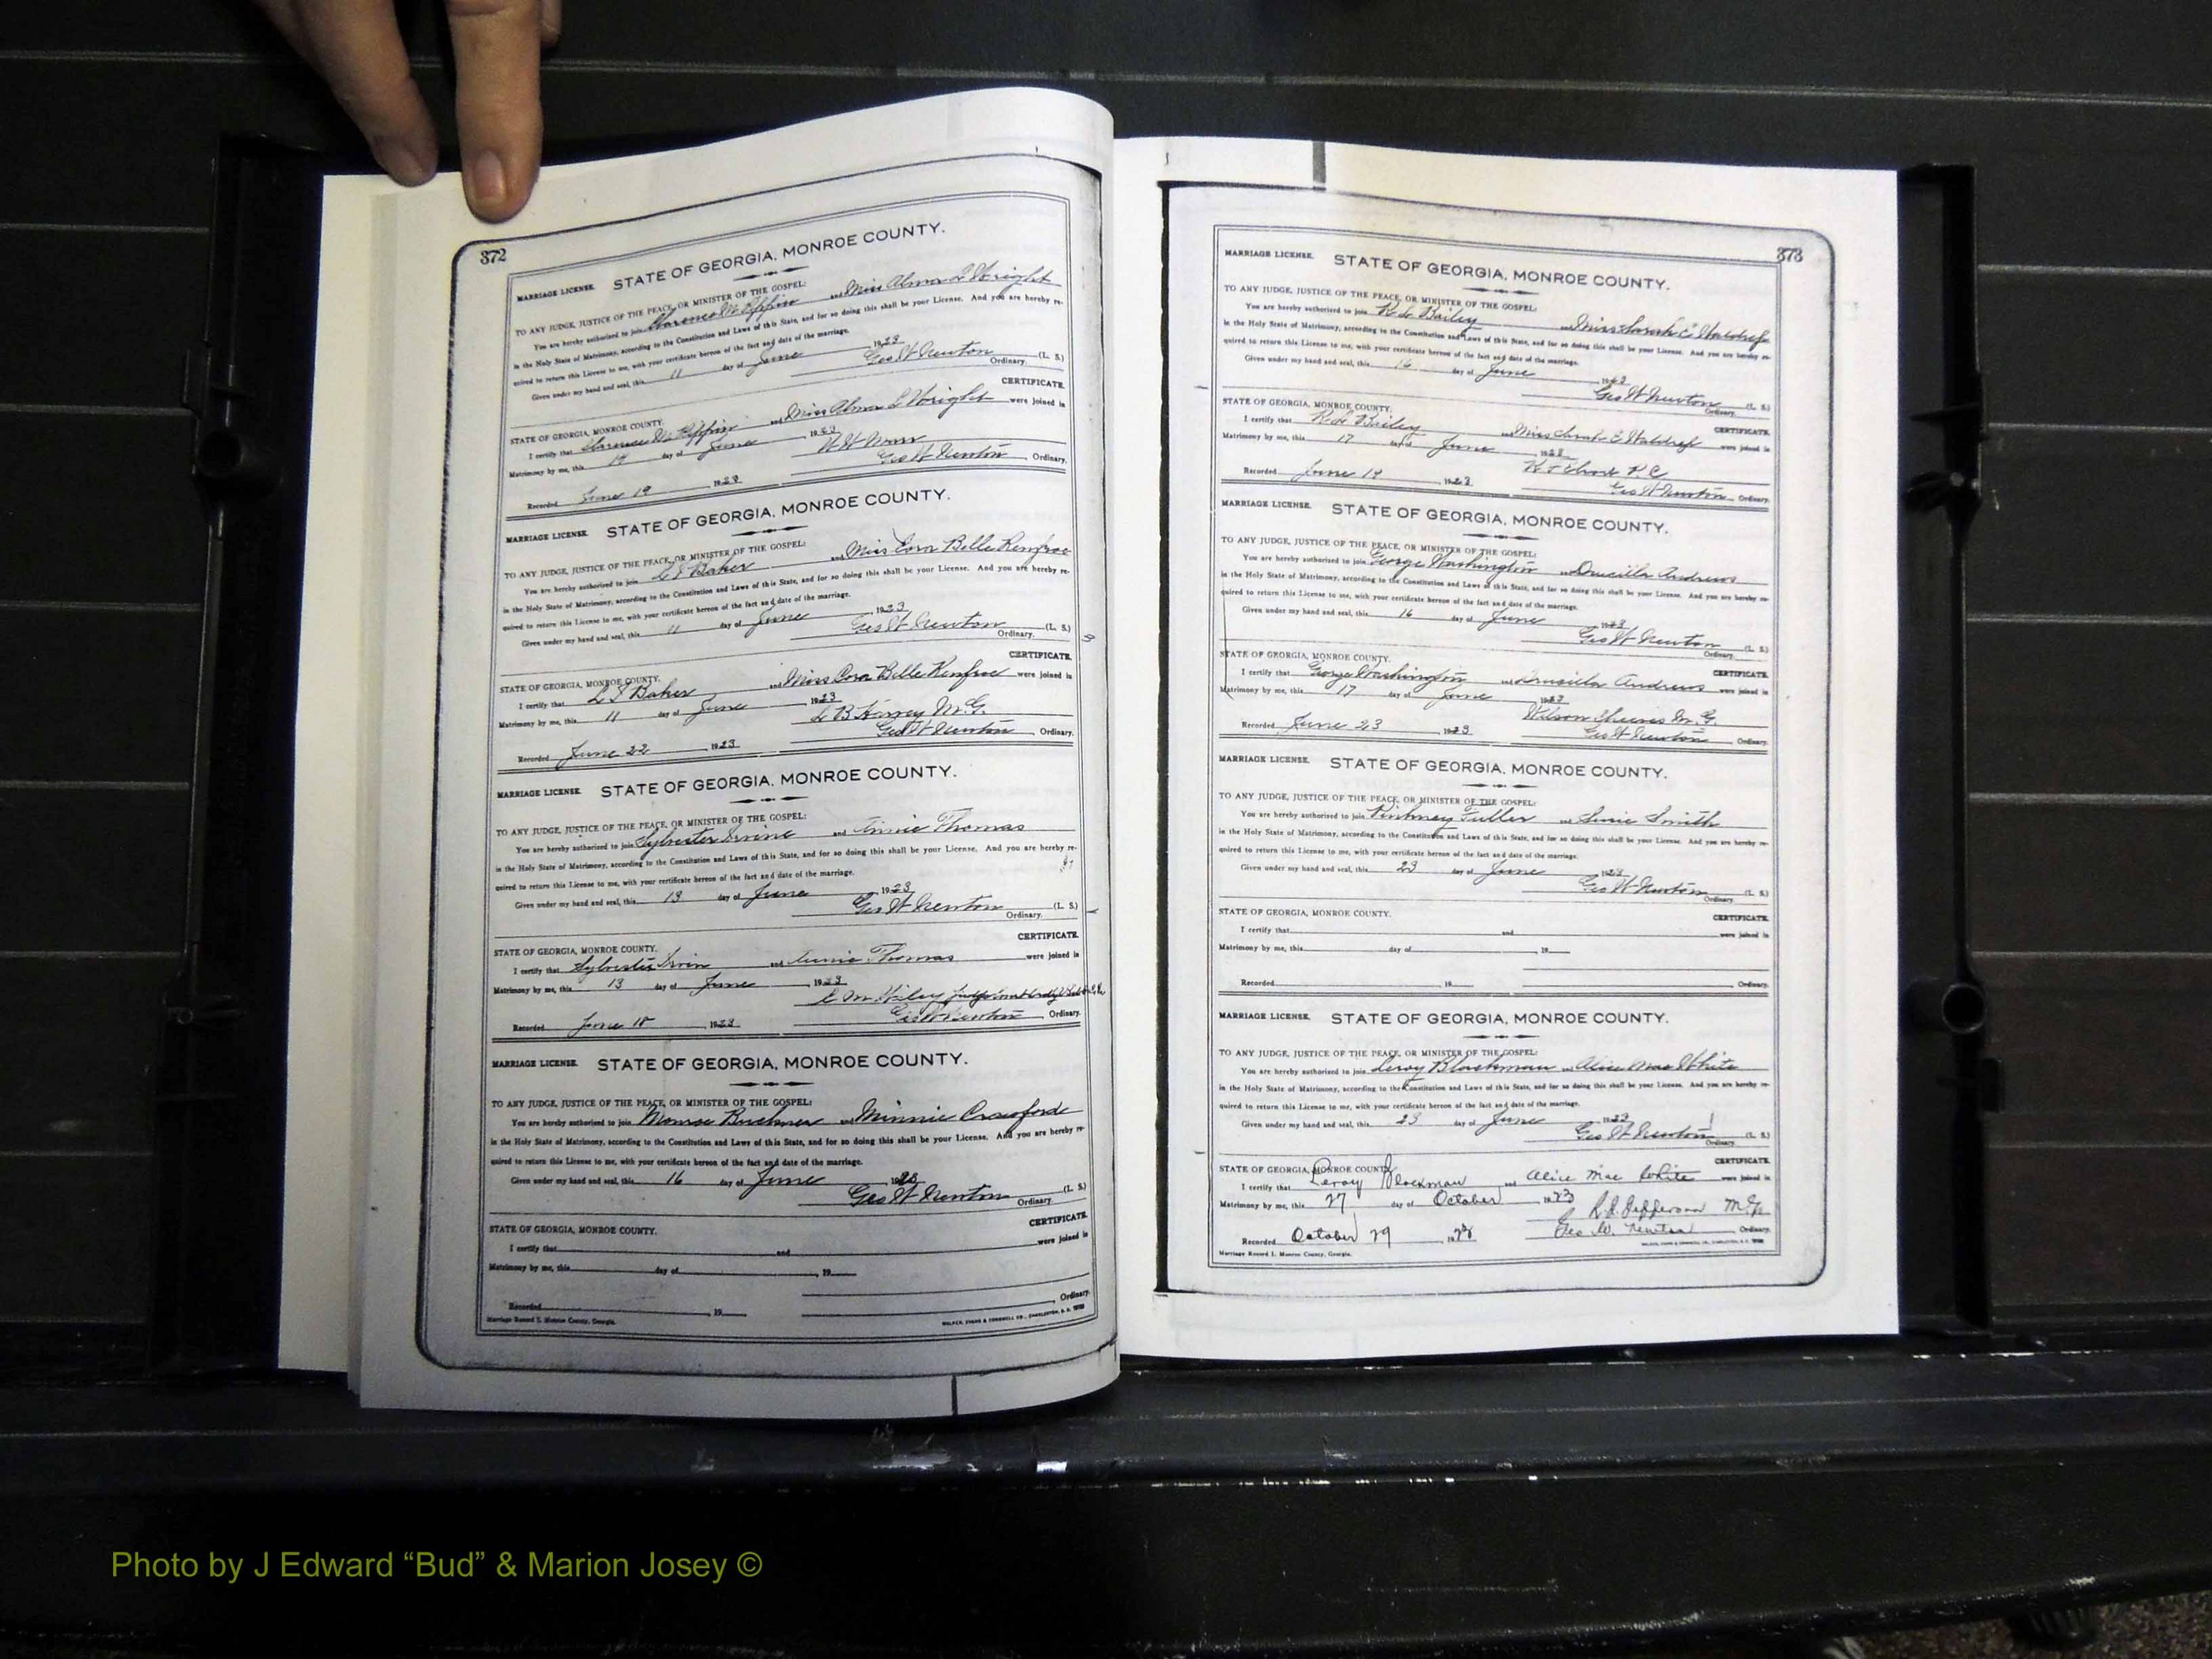 372
MARRIAGE LICENSE. STATE OF GEORGIA, MONROE COUNTY.
TO ANY JUDGE, JUSTICE OF THE PEACE, OR MINISTER OF THE GOSPEL:
You are hereby authorized to join Clarence and Miss Alma L Wright
in the Holy State of Matrimony, according to the Constitution and Laws of this State, and for so doing this shall be your License. And you are hereby re-
quired to return this License to me, with your certificate hereon of the fact and date of the marriage.
Given under my hand and seal, this 11 day of June 1923
Geo W Newton (L. S.)
Ordinary.
CERTIFICATE.
STATE OF GEORGIA, MONROE COUNTY.
I certify that Clarence and Miss Alma L Wright were joined in
Matrimony by me, this day of June 1923
Geo W Newton Ordinary.
Recorded June 19 1923
MARRIAGE LICENSE. STATE OF GEORGIA, MONROE COUNTY.
TO ANY JUDGE, JUSTICE OF THE PEACE, OR MINISTER OF THE GOSPEL:
You are hereby authorized to join L S Baker and Miss Cora Belle Renfroe
in the Holy State of Matrimony, according to the Constitution and Laws of this State, and for so doing this shall be your License. And you are hereby re-
quired to return this License to me, with your certificate hereon of the fact and date of the marriage.
Given under my hand and seal, this 11 day of June 1923
Geo W Newton (L. S.)
Ordinary.
CERTIFICATE.
STATE OF GEORGIA, MONROE COUNTY.
I certify that L S Baker and Miss Cora Belle Renfroe were joined in
Matrimony by me, this 11 day of June 1923
L B Harvey M.G.
Geo W Newton Ordinary.
Recorded June 22 1923
MARRIAGE LICENSE. STATE OF GEORGIA, MONROE COUNTY.
TO ANY JUDGE, JUSTICE OF THE PEACE, OR MINISTER OF THE GOSPEL:
You are hereby authorized to join Sylvester Irvine and Annie Thomas
in the Holy State of Matrimony, according to the Constitution and Laws of this State, and for so doing this shall be your License. And you are hereby re-
quired to return this License to me, with your certificate hereon of the fact and date of the marriage.
Given under my hand and seal, this 13 day of June 1923
Geo W Newton (L. S.)
Ordinary.
CERTIFICATE.
STATE OF GEORGIA, MONROE COUNTY.
I certify that Sylvester Irvin and Annie Thomas were joined in
Matrimony by me, this 13 day of June 1923
C M Wiley Judge
Geo W Newton Ordinary.
Recorded June 18 1923
MARRIAGE LICENSE. STATE OF GEORGIA, MONROE COUNTY.
TO ANY JUDGE, JUSTICE OF THE PEACE, OR MINISTER OF THE GOSPEL:
You are hereby authorized to join Monroe Buckner and Minnie Crawforde
in the Holy State of Matrimony, according to the Constitution and Laws of this State, and for so doing this shall be your License. And you are hereby re-
quired to return this License to me, with your certificate hereon of the fact and date of the marriage.
Given under my hand and seal, this 16 day of June 1923
Geo W Newton (L. S.)
Ordinary.
CERTIFICATE.
STATE OF GEORGIA, MONROE COUNTY.
I certify that and were joined in
Matrimony by me, this day of , 19
Ordinary.
Recorded , 19
Marriage Record I. Monroe County, Georgia. WALKER, EVANS & COGSWELL CO., CHARLESTON, S. C.
373
MARRIAGE LICENSE. STATE OF GEORGIA, MONROE COUNTY.
TO ANY JUDGE, JUSTICE OF THE PEACE, OR MINISTER OF THE GOSPEL:
You are hereby authorized to join R L Bailey and Miss Sarah E Waldrep
in the Holy State of Matrimony, according to the Constitution and Laws of this State, and for so doing this shall be your License. And you are hereby re-
quired to return this License to me, with your certificate hereon of the fact and date of the marriage.
Given under my hand and seal, this 16 day of June 1923
Geo W Newton (L. S.)
Ordinary.
STATE OF GEORGIA, MONROE COUNTY.
CERTIFICATE.
I certify that R L Bailey and Miss Sarah E Waldrep were joined in
Matrimony by me, this 17 day of June 1923
Recorded June 19 1923
Geo W Newton Ordinary.
MARRIAGE LICENSE. STATE OF GEORGIA, MONROE COUNTY.
TO ANY JUDGE, JUSTICE OF THE PEACE, OR MINISTER OF THE GOSPEL:
You are hereby authorized to join George Washington and Drucilla Andrews
in the Holy State of Matrimony, according to the Constitution and Laws of this State, and for so doing this shall be your License. And you are hereby re-
quired to return this License to me, with your certificate hereon of the fact and date of the marriage.
Given under my hand and seal, this 16 day of June 1923
Geo W Newton (L. S.)
Ordinary.
STATE OF GEORGIA, MONROE COUNTY.
CERTIFICATE.
I certify that George Washington and Drucilla Andrews were joined in
Matrimony by me, this 17 day of June 1923
Wilson M.G.
Recorded June 23 1923
Geo W Newton Ordinary.
MARRIAGE LICENSE. STATE OF GEORGIA, MONROE COUNTY.
TO ANY JUDGE, JUSTICE OF THE PEACE, OR MINISTER OF THE GOSPEL:
You are hereby authorized to join Pinkney Fuller and Susie Smith
in the Holy State of Matrimony, according to the Constitution and Laws of this State, and for so doing this shall be your License. And you are hereby re-
quired to return this License to me, with your certificate hereon of the fact and date of the marriage.
Given under my hand and seal, this 23 day of June 1923
Geo W Newton (L. S.)
Ordinary.
STATE OF GEORGIA, MONROE COUNTY.
CERTIFICATE.
I certify that and were joined in
Matrimony by me, this day of , 19
Recorded 19 Ordinary.
MARRIAGE LICENSE. STATE OF GEORGIA, MONROE COUNTY.
TO ANY JUDGE, JUSTICE OF THE PEACE, OR MINISTER OF THE GOSPEL:
You are hereby authorized to join Leroy Blackman and Alice Mae White
in the Holy State of Matrimony, according to the Constitution and Laws of this State, and for so doing this shall be your License. And you are hereby re-
quired to return this License to me, with your certificate hereon of the fact and date of the marriage.
Given under my hand and seal, this 23 day of June 1923
Geo W Newton (L. S.)
Ordinary.
CERTIFICATE.
STATE OF GEORGIA, MONROE COUNTY.
I certify that Leroy Blackman and Alice Mae White were joined in
Matrimony by me, this 27 day of October 1923
M.G.
Recorded October 29 1923 Geo W. Newton Ordinary.
Marriage Record I. Monroe County, Georgia. WALKER, EVANS & COGSWELL CO., CHARLESTON, S. C.
Photo by J Edward “Bud” & Marion Josey ©